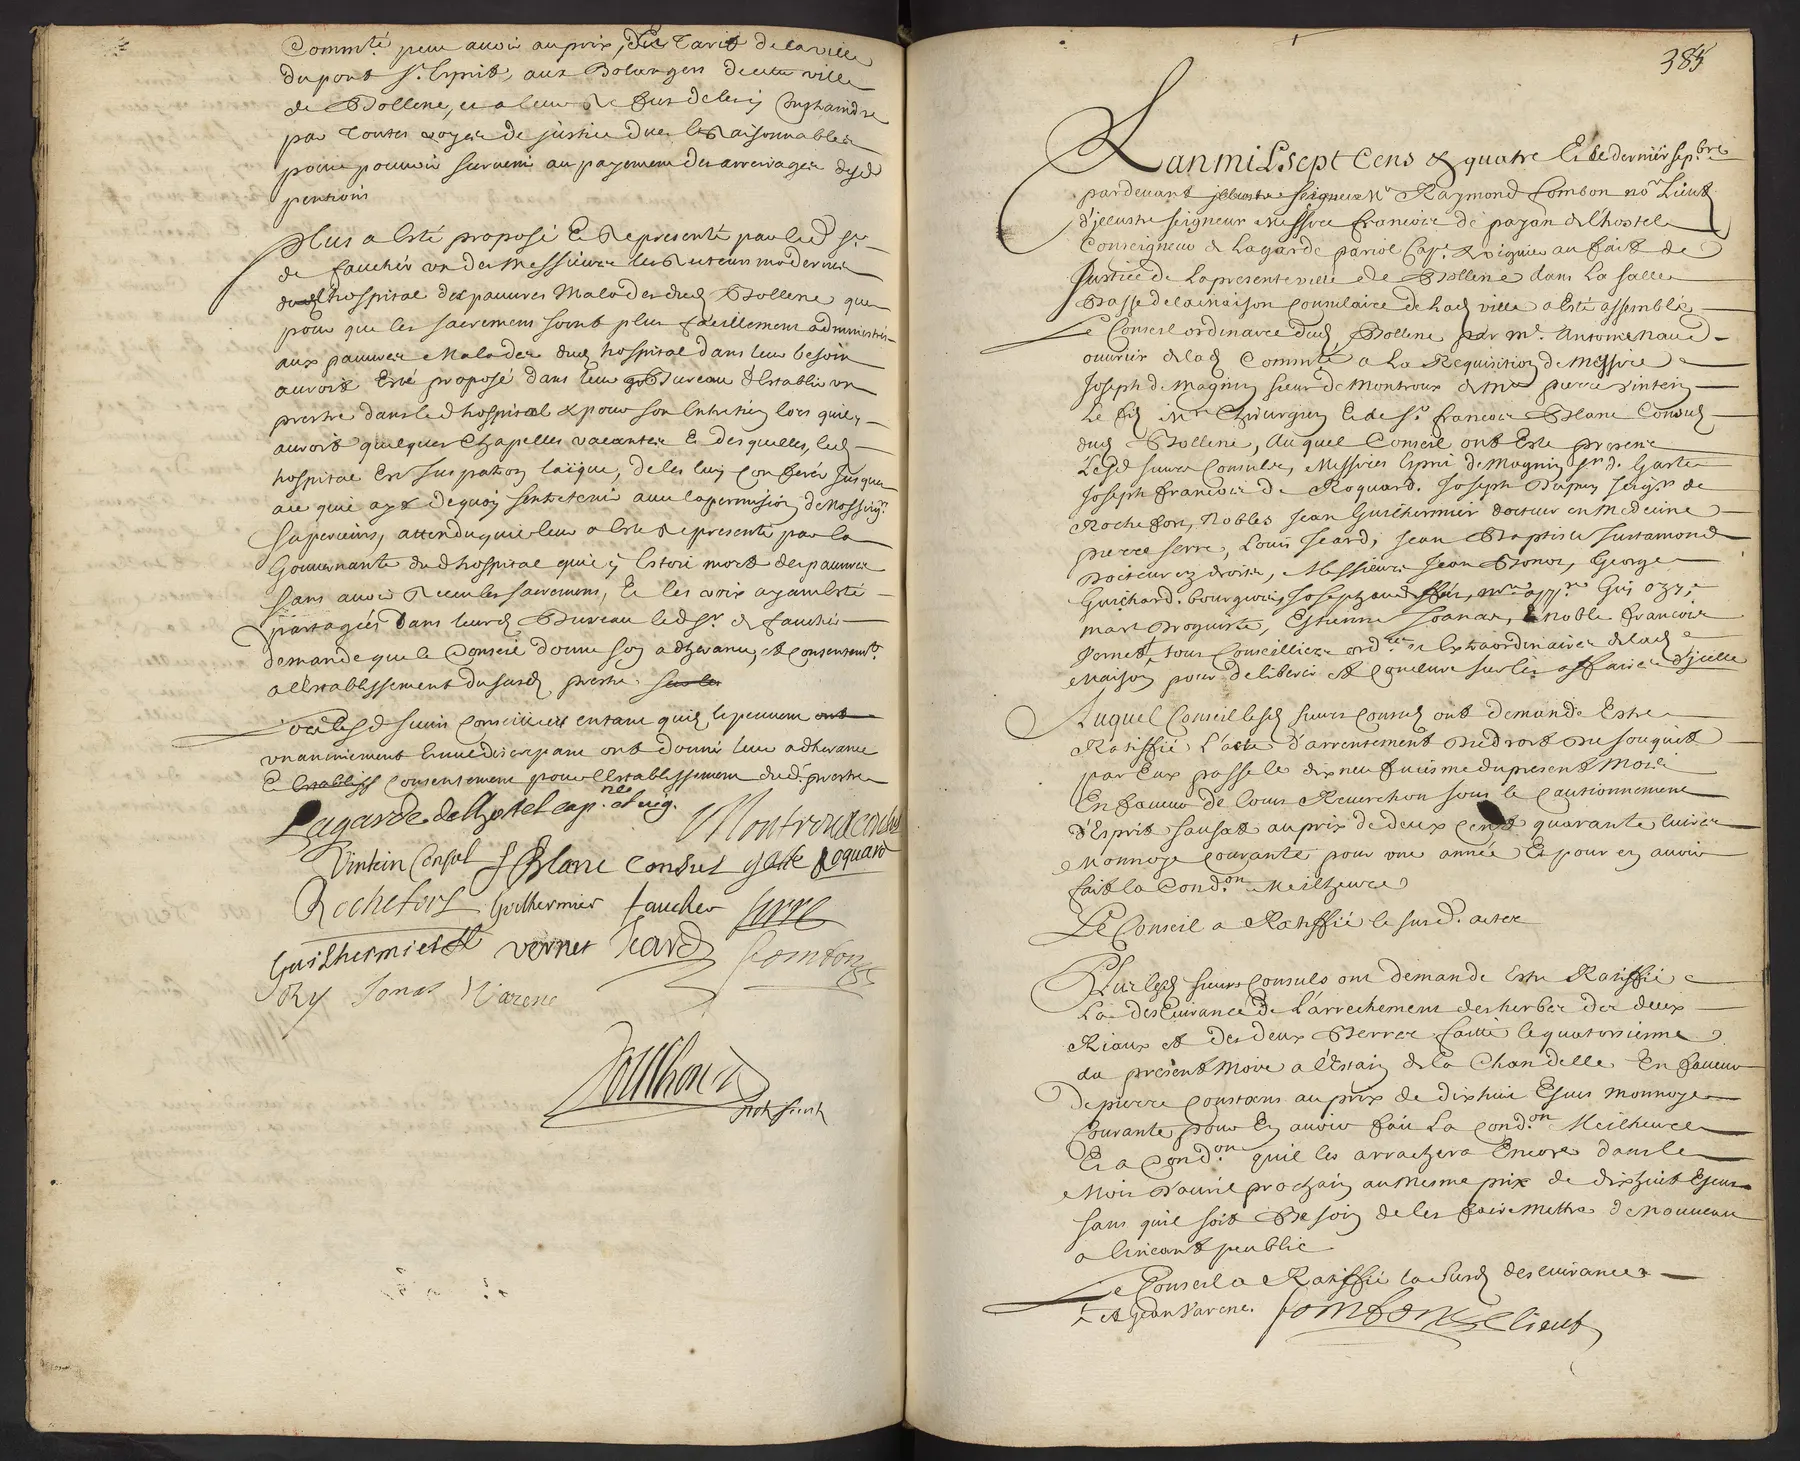 Commté. peut avoir au prix, du Tarif de la ville
du pont St. Esprit, aux Bolangers de cette ville
de Bollene, et a leur Refus de les y Constraindre
par toutes voyes de justice dues et Raisonnables
pour pouvoir survenir au payement des arrerages desd.
pentions
Plus a Esté proposé Et Representé par led sr.
de faucher un des Messieurs les Recteurs modernes
dud hospital des pauvres Malades dud Bollene que
pour que les sacremens soint plus facillement administrés
aux pauvres Malades dud hospital dans leur besoin
auroit Esté proposé dans leur Bureau d'Establir un
prestre dans led hospital & pour son Entretien lors quil y
auroit quelques Chapelles vacantes Et desquelles, led
hospital En Juspatron laïque, de les luy Conferer Jusques
au quil ayt de quoy sentretenir avec la permission de Nosseigrs.
superieurs, attendu quil leur a Esté Representé par la
Gouvernante dud hospital quil y Estoit mort des pauvres
sans avoir Receu les sacremens, Et les voix ayant esté
partagées Dans leurd Bureau led sr. de faucher
demande que le Conseil donne son adherance, et consentemt.
a l'Establissement du susd prestre.
lesd sieurs Conseilliers entant quils le peuvent ont
unanimement & nul discrepant ont donné leur adherance
Et Consentement pour l'Establissement dud. prestre
Lagarde de lhostel capne. et vig. Montroux consul
Vintein Consul F Blanc Consul gaste Roquard
Rochefort Guilhermier faucher Serre
Guilhermier Vernet Jeard Combon
Ozy Jonas Varene
385
Lan mil sept Cens & quatre Et le dernier sepbre
pardevant Mr Raymond Combon nore Lieut
d'jllustre seigneur Messire francois de payan de l'hostel
Conseigneur de Lagarde pariol Cape. & viguier au fait de
Justice de La presente ville de Bollene dans La salle
Basse de la maison Consulaire de lad ville a esté assemblé
Le Conseil ordinaire dud Bollene, par Mr. Antoine Naud
ouvrier de lad Commté a La Requisition de Messire
Joseph de Magnin sieur de Montroux & Mre pierre Vintein
Le fils Mre Chirurgien Et de Sr. francois Blanc Consuls
dud Bollene, Auquel Conseil ont Esté presens
Lesd sieurs Consuls, Messires Esprit de Magnin sr. de Gaste
Joseph francois de Roquard. Joseph Dupuy seigr. de
Rochefort, Nobles Jean Guilhermier docteur en Medecine
pierre serre, Louis Jeard, Jean Baptiste Justamond
Docteur ez droits, Messieurs Jean George
Guichard. bourgeois, Joseph Mre appre. Gui Ozy,
mart Droguiste, Estienne Joanas, & noble francois
Vernet, tous Conseilliers ordres & Extraordinaires de lad
Maison pour deliberer et Conclure sur les affaires d'jcelle
Auquel Conseil lesd sieurs Consuls ont demandé Estre
Ratiffié L'acte d'arrentement Du droit Du souquet
par Eux passé le dix neufviesme du present Mois
En faveur de Louis Reverchon sous le Cautionnement
d'Esprit sausat au prix de deux Cens quarante livres
Monnoye courante pour une année Et pour en avoir
fait la Condon. Meilheure
Le Conseil a Ratiffié le susd. acte
Plus lesd sieurs Consuls ont demandé Estre Ratiffié
La deslivrance de L'arrechement des herbes des deux
Rieaux et des deux Berres faitte le quatorsieme
du present Mois a l'Estain de la Chandelle En faveur
de pierre Constans au prix de dixhuit Escus Monnoye
Courante pour En avoir fait La Condon. Meilheure
Et a Condon. quil les arrachera Encore dans le
Mois D'avril prochain au mesme prix de dixhuit Escus
sans quil soit Besoin de les faire mettre de Nouveau
a lincant publiic
Le Conseil a Ratiffié la susd deslivrance
& Jean Varene. Combon Lieut